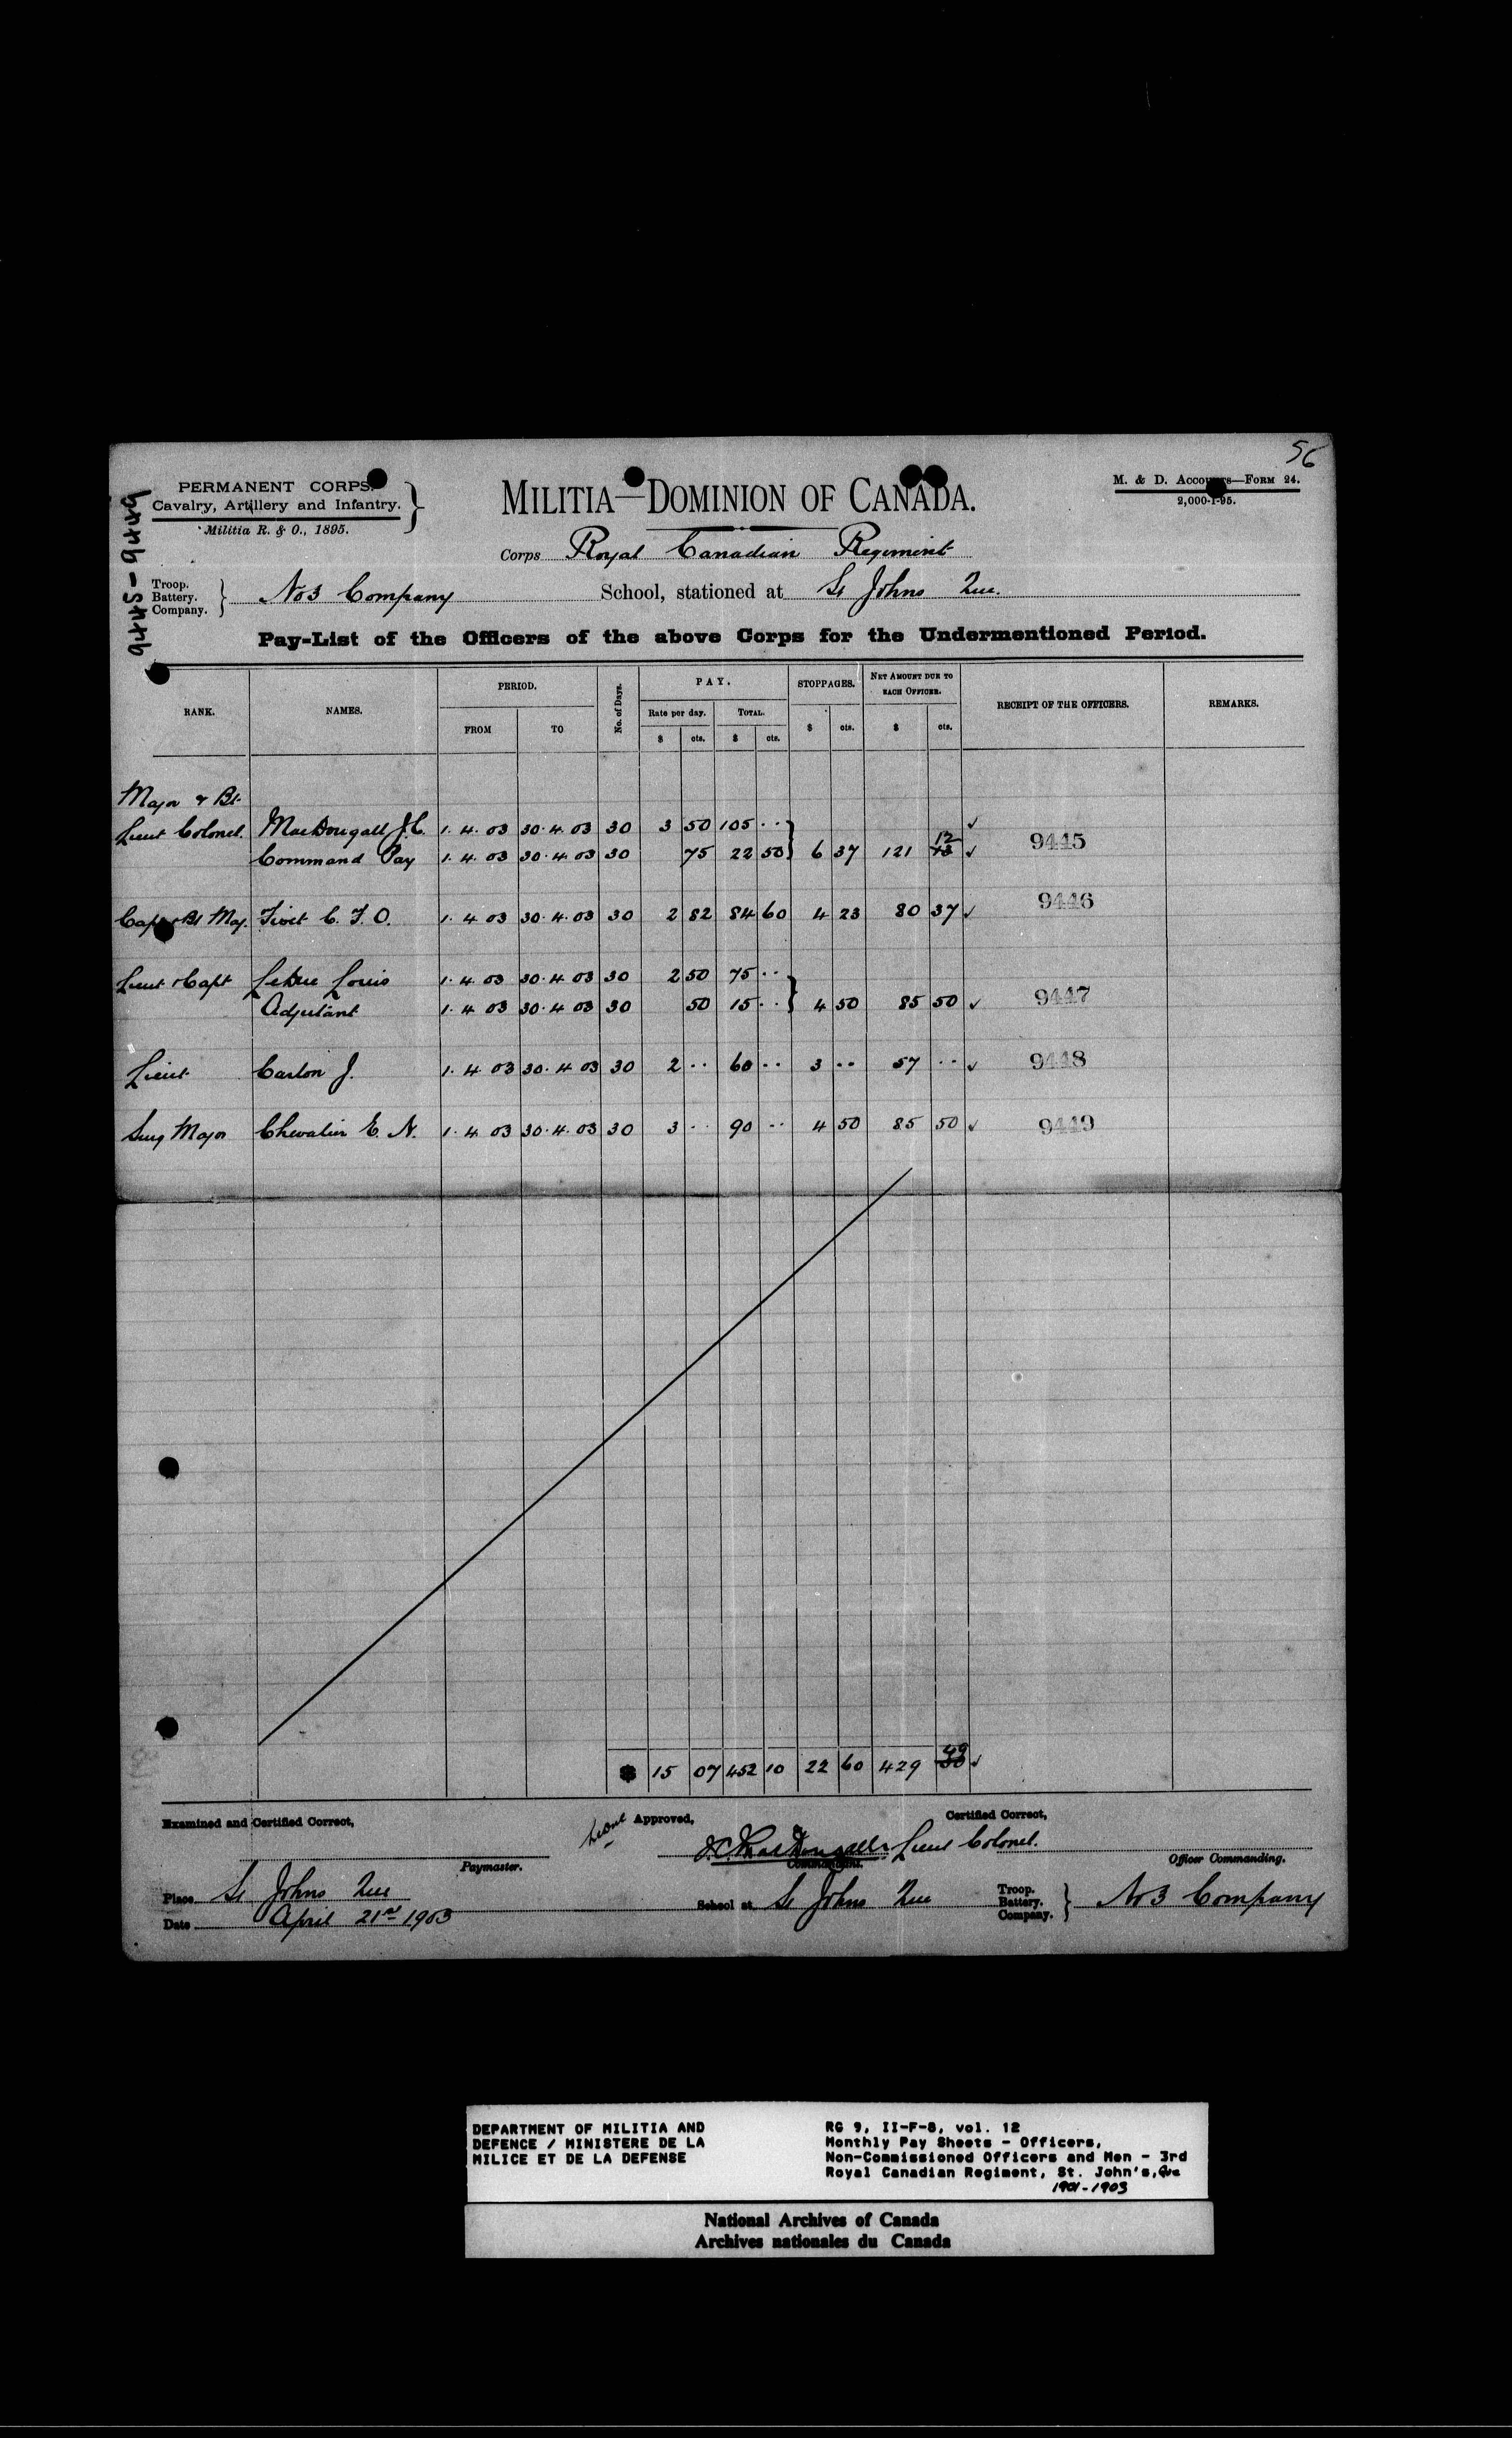 56
PERMANENT CORPS.
Cavalry, Artillery and Infantry.
Militia R. & O., 1895.
MILITIA—DOMINION OF CANADA.
M. & D. Accounts—Form 24.
2,000-1-95.
9445-9449
Corps Royal Canadian Regiment
Troop. Battery. Company. } No 3 Company School, stationed at St Johns Que.
Pay-List of the Officers of the above Corps for the Undermentioned Period.
RANK. NAMES. PERIOD. FROM TO No. of Days. PAY. Rate per day. $ cts. TOTAL. $ cts. STOPPAGES. $ cts. NET AMOUNT DUE TO EACH OFFICER. $ cts. RECEIPT OF THE OFFICERS. REMARKS.
Major & Bt
Lieut Colonel. MacDougall J.C. 1. 4. 03 30. 4. 03 30 3 50 105 ·· ✓
Command Pay 1. 4. 03 30. 4. 03 30 75 22 50 } 6 37 121 12 13 ✓ 9445
Capt & Bt Maj. C. T. O. 1. 4 03 30. 4. 03 30 2 82 84 60 4 23 80 37 ✓ 9446
Lieut & Capt LeDuc Louis 1. 4 03 30. 4 03 30 2 50 75 ··
Adjutant 1. 4 03 30. 4 03 30 50 15 ·· } 4 50 85 50 ✓ 9447
Lieut Carlon J. 1. 4 03 30. 4 03 30 2 ·· 60 ·· 3 ·· 57 ·· ✓ 9448
Surg Major Chevalier E. N. 1. 4 03 30. 4. 03 30 3 ·· 90 ·· 4 50 85 50 ✓ 9449
$ 15 07 452 10 22 60 429 49 50 ✓
Examined and Certified Correct,
Approved,
Certified Correct,
Lieut
J.C. MacDougall Lieut Colonel.
Paymaster.
Commandant.
Officer Commanding.
Place St Johns Que
School at St Johns Que
Troop. Battery. Company. } No 3 Company
Date April 21st 1903
DEPARTMENT OF MILITIA AND
DEFENCE / MINISTERE DE LA
MILICE ET DE LA DEFENSE
RG 9, II-F-8, vol. 12
Monthly Pay Sheets - Officers,
Non-Commissioned Officers and Men - 3rd
Royal Canadian Regiment, St. John's, Que
1901-1903
National Archives of Canada
Archives nationales du Canada